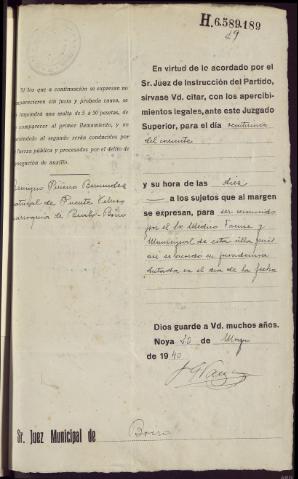 H.6.589.189
29
Si los que a continuación se expresan no
comparecieren sin justa y probada causa, se
les impondrá una multa de 5 a 50 pesetas, de
no comparecer al primer llamamiento, y no
haciéndolo al segundo serán conducidos por
fuerza pública y procesados por el delito de
denegación de auxilio.
Piñeiro
natural de Puente
parroquia de
En virtud de lo acordado por el
Sr. Juez de Instrucción del Partido,
sírvase Vd. citar, con los apercibi
mientos legales, ante este Juzgado
Superior, para el día veintiuno
del corriente
y su hora de las diez
a los sujetos que al margen
se expresan, para ser reconocido
por el Sr Médico Forense y
Municipal de esta villa pues
así se acordó en providencia
dictada en el día de la fecha
Dios guarde a Vd. muchos años.
Noya 20 de Mayo
de 1940
Sr. Juez Municipal de Boiro